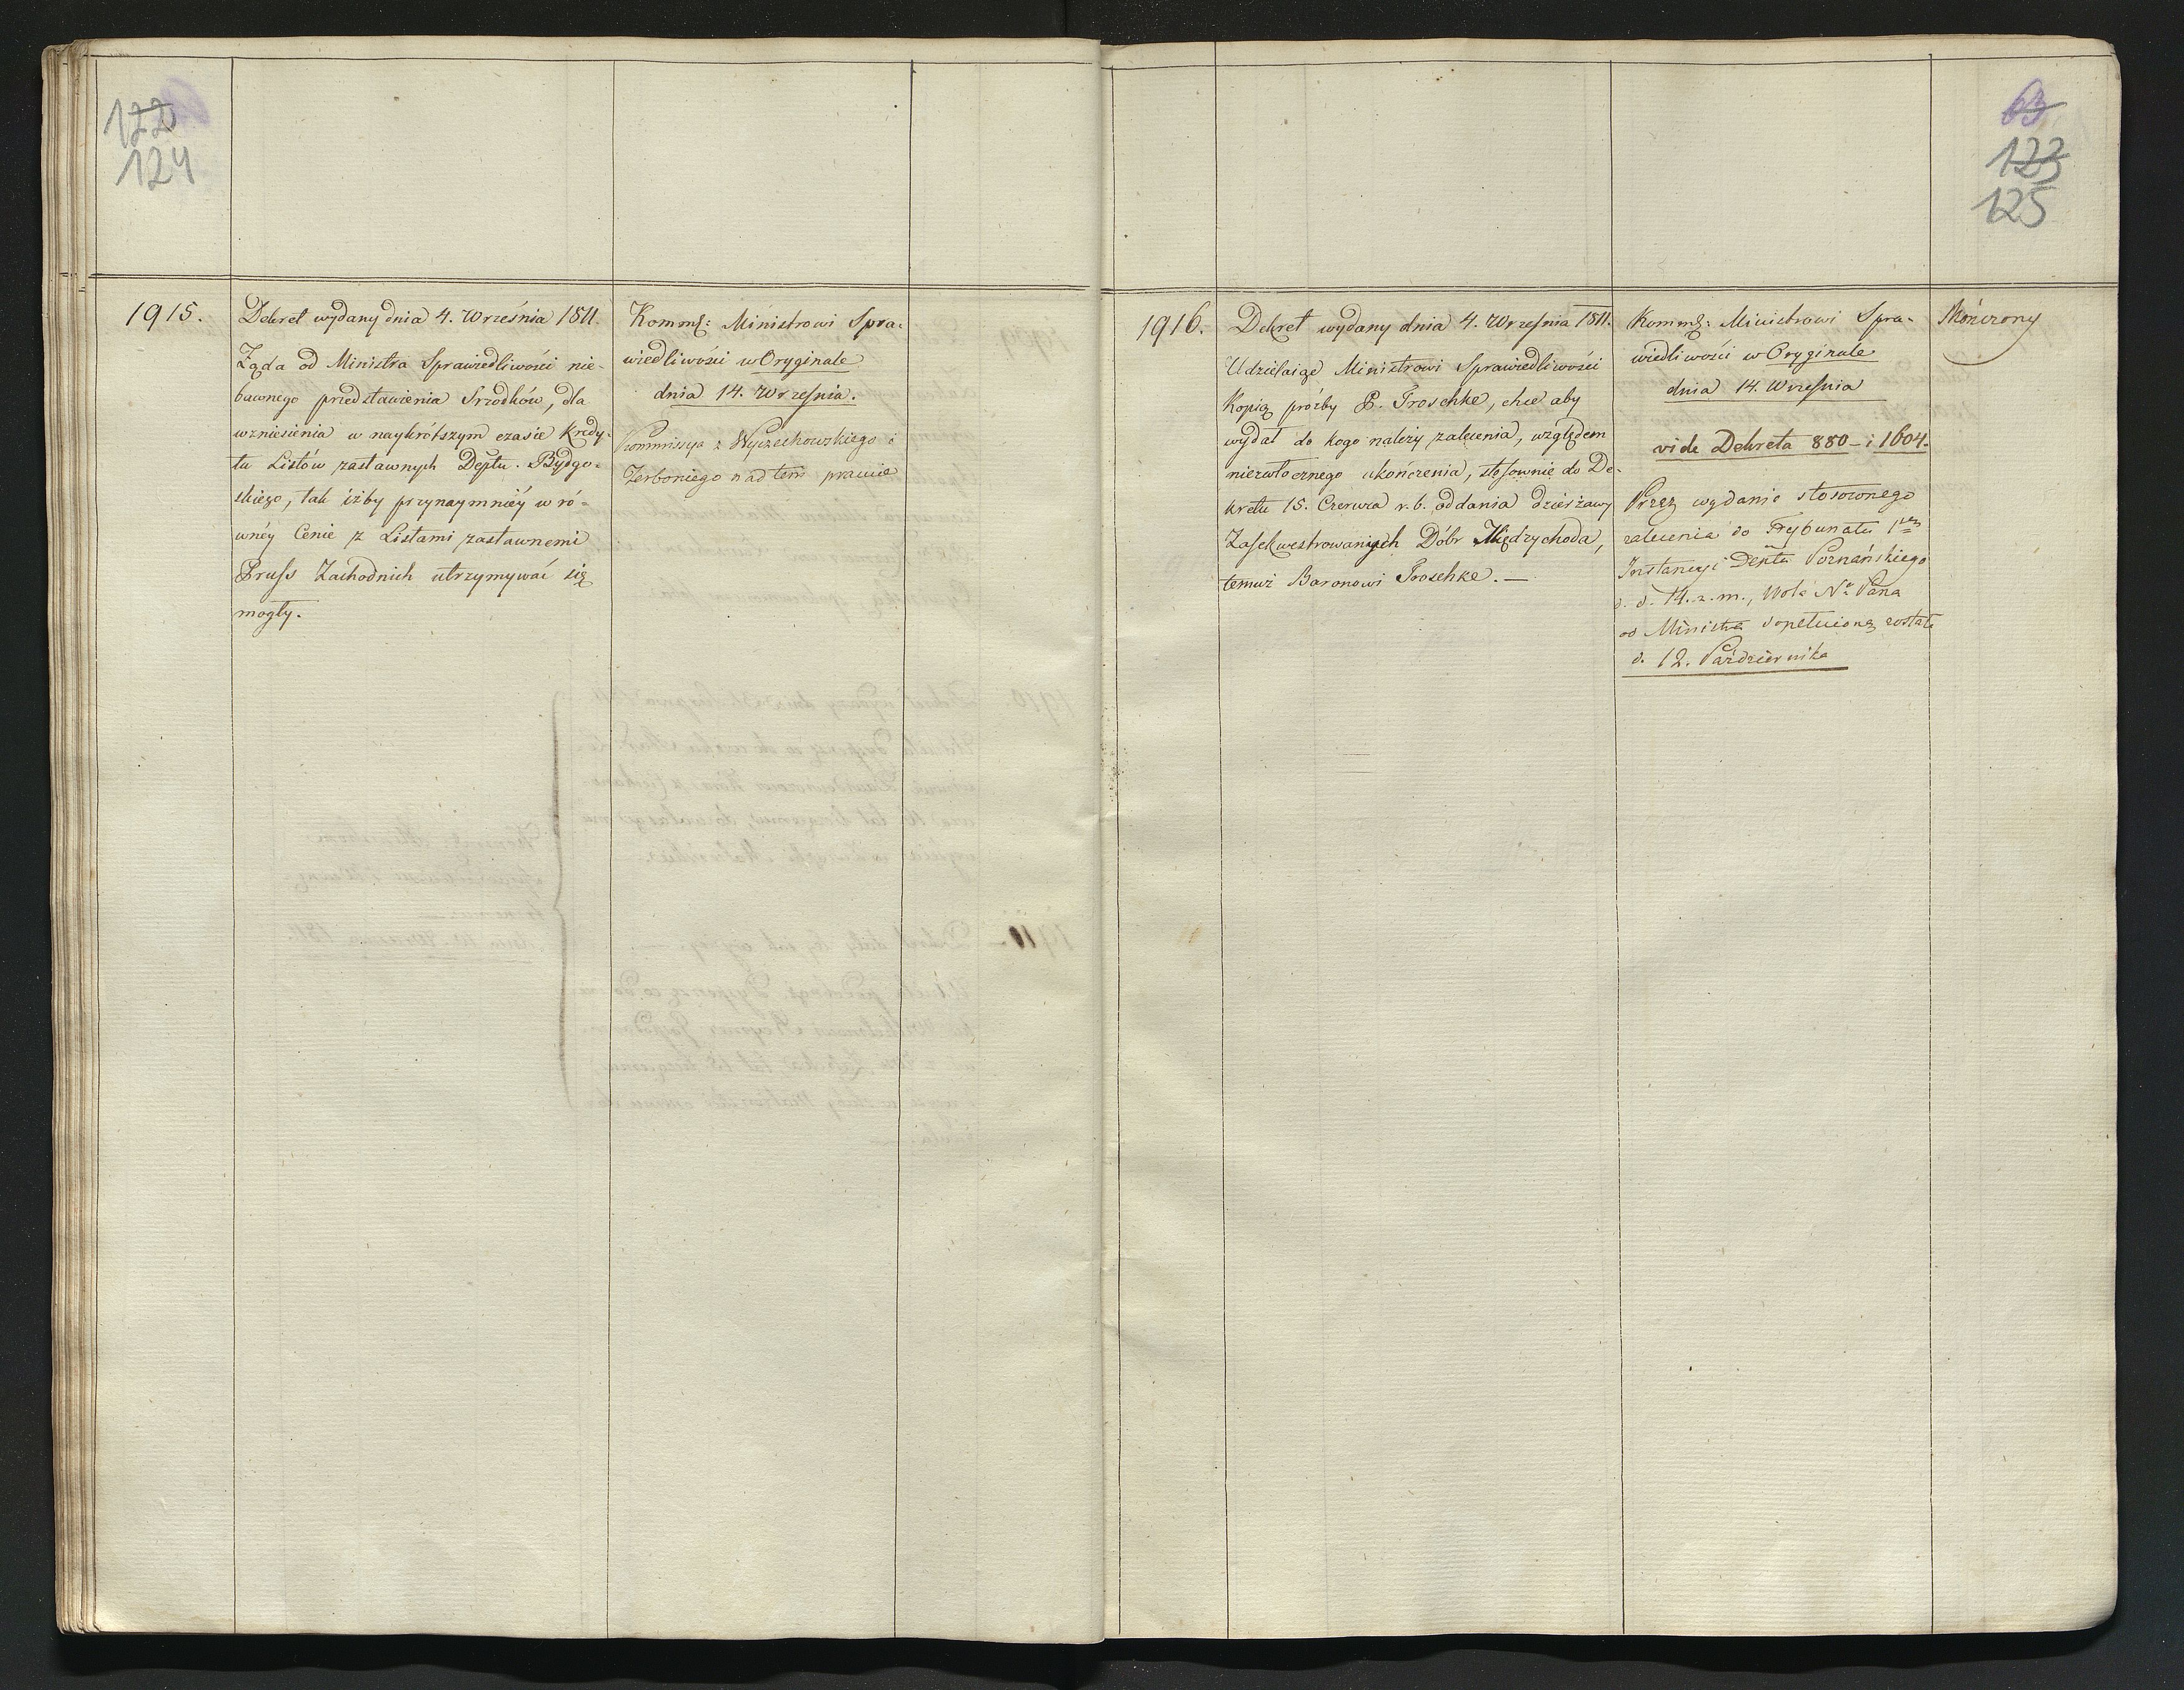 122
124
1915.
Dekret wydany dnia 4. Września 1811.
Żąda od Ministra Sprawiedliwości nie-
bawnego przedstawienia Srzodków, dla
wzniesienia w naykrótszym czasie Kredy-
tu Listów zastawnych Deptu. Bydgo-
skiego, tak iżby przynaymniéy w ró-
wnéy Cenie z Listami zastawnemi
Pruss Zachodnich utrzymywać się
mogły.
Kommk: Ministrowi Spra-
wiedliwości w Oryginale
dnia 14. Września.
Kommissya z Wyczechowskiego i
Zerboniego nad tem pracuie
63
123
125
1916.
Dekret wydany dnia 4. Września 1811.
Udzielaiąc Ministrowi Sprawiedliwości
Kopią proźby P. Troschke, chce aby
wydał do kogo należy zalecenia, względem
niezwłocznego ukończenia, stosownie do De-
kretu 15. Czerwca r. b. oddania dzierżawy
Zasekwestrowanych Dóbr Międzychoda,
temuż Baronowi Troschke. —
Kommk: Ministrowi Spra-
wiedliwości w Oryginale
dnia 14. Września
vide Dekreta 880 - i 1604.
Przez wydanie stosownego
zalecenia do Trybunału 1szej
Instancyi Deptu Poznańskiego
d. d. 14. z. m., Wola Nº Pana
od Ministra dopełnioną została
d. 12. Października
Skończony